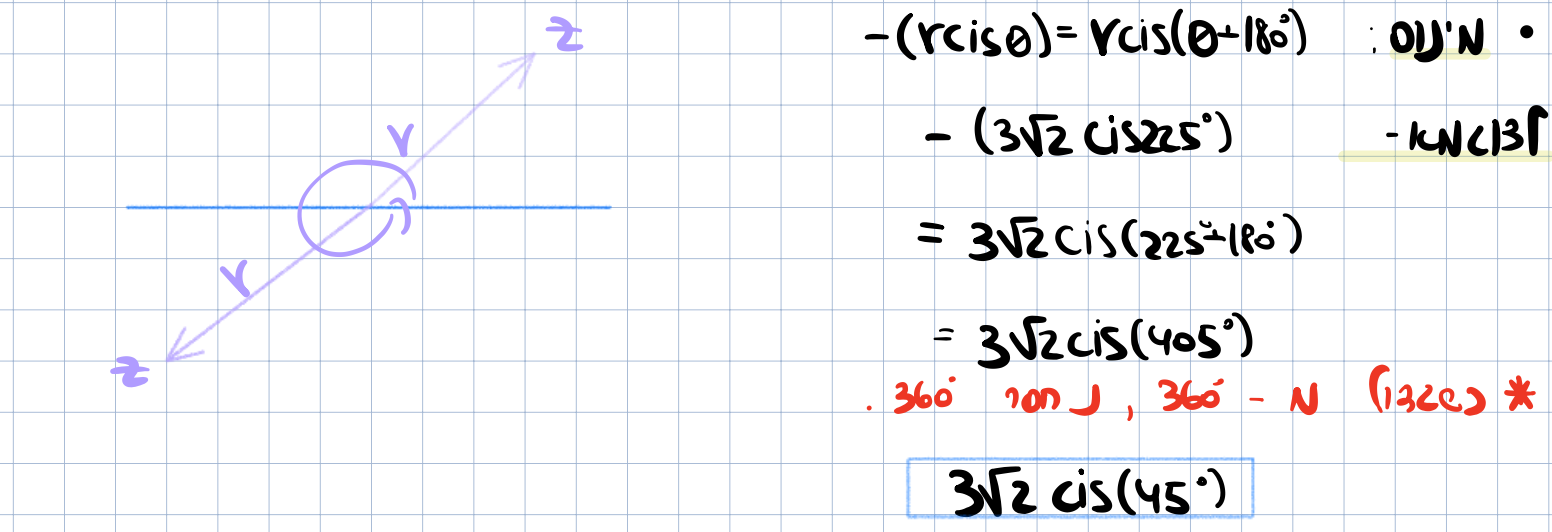 • מינוס: -(rcisθ) = rcis(θ+180°)
לדוגמא- -(3√2 cis225°)
= 3√2 cis(225°+180°)
= 3√2cis(405°)
* כשגדול מ-360°, נחסר 360°.
3√2 cis(45°)
z
r
r
z